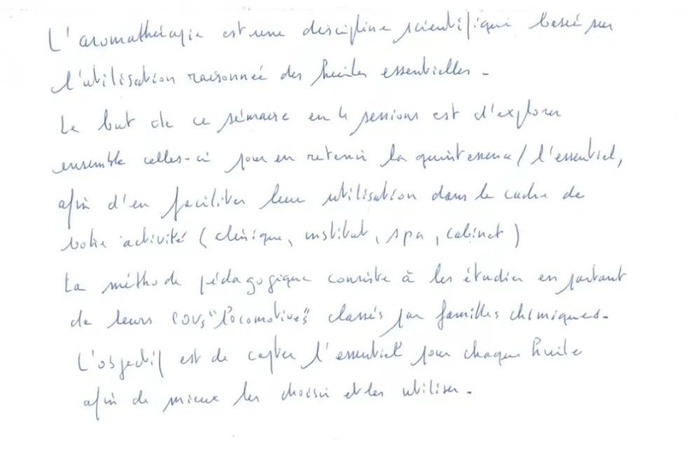 L'aromathérapie est une discipline scientifique basée sur
l'utilisation raisonnée des huiles essentielles.
Le but de ce sémaire en 4 sessions est d'explorer
ensemble celles-ci pour en retenir la quintessence / l'essentiel,
afin d'en faciliter leur utilisation dans le cadre de
votre activité (clinique, institut, spa, cabinet)
La méthode pédagogique consiste à les étudier en partant
de leurs COVs "locomotives" classés par familles chimiques.
L'objectif est de capter l'essentiel pour chaque huile
afin de mieux les choisir et les utiliser.